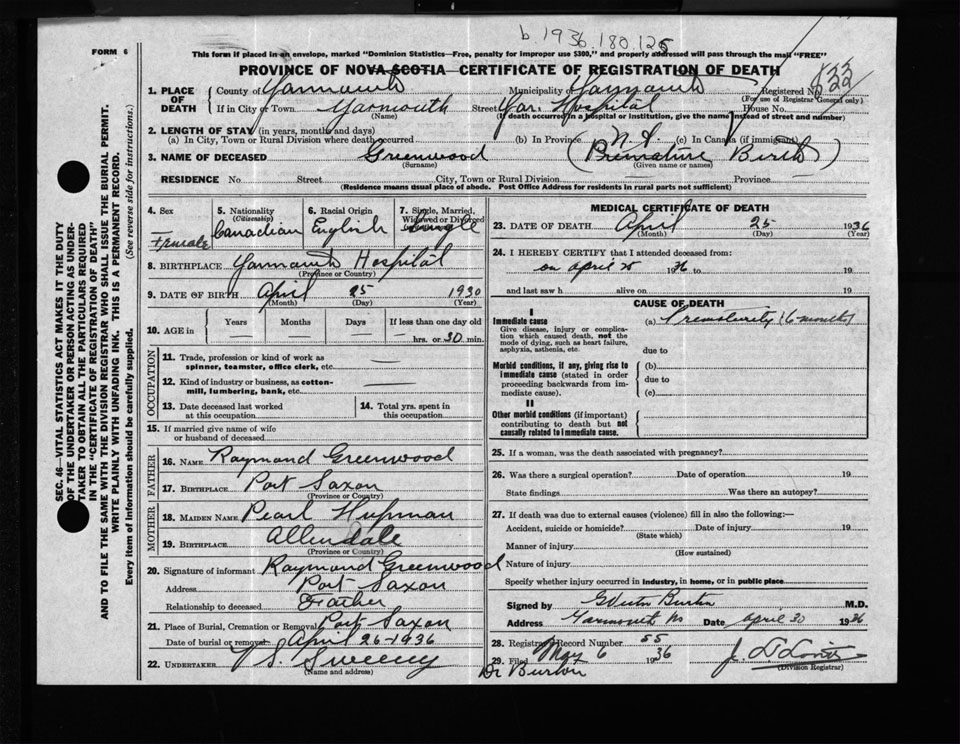 b 1936.180.125
FORM 6
This form if placed in an envelope, marked "Dominion Statistics—Free, penalty for improper use $300," and properly addressed will pass through the mail "FREE"
PROVINCE OF NOVA SCOTIA—CERTIFICATE OF REGISTRATION OF DEATH
1. PLACE OF DEATH
County of Yarmouth Municipality of Yarmouth Registered No.
(For use of Registrar General only)
If in City or Town Yarmouth Street Yar. Hospital House No.
(Name) (If death occurred in a hospital or institution, give the name instead of street and number)
2. LENGTH OF STAY (in years, months and days)
(a) In City, Town or Rural Division where death occurred (b) In Province N.S. (c) In Canada (if immigrant)
3. NAME OF DECEASED Greenwood (Premature Birth)
(Surname) (Given name or names)
RESIDENCE No. Street City, Town or Rural Division Province
(Residence means usual place of abode. Post Office Address for residents in rural parts not sufficient)
4. Sex Female
5. Nationality (Citizenship) Canadian
6. Racial Origin English
7. Single, Married, Widowed or Divorced Single
8. BIRTHPLACE Yarmouth Hospital
(Province or Country)
9. DATE OF BIRTH April 25 1930
(Month) (Day) (Year)
10. AGE in Years Months Days If less than one day old
hrs. or 30 min.
OCCUPATION
11. Trade, profession or kind of work as spinner, teamster, office clerk, etc. —
12. Kind of industry or business, as cotton-mill, lumbering, bank, etc. —
13. Date deceased last worked at this occupation
14. Total yrs. spent in this occupation
15. If married give name of wife or husband of deceased
FATHER
16. NAME Raymond Greenwood
17. BIRTHPLACE Port Saxon
(Province or Country)
MOTHER
18. MAIDEN NAME Pearl Hupman
19. BIRTHPLACE Allendale
(Province or Country)
20. Signature of informant Raymond Greenwood
Address Port Saxon
Relationship to deceased Father
21. Place of Burial, Cremation or Removal Port Saxon
Date of burial or removal April 26-1936
22. UNDERTAKER V S. Sweeny
(Name and address)
MEDICAL CERTIFICATE OF DEATH
23. DATE OF DEATH April 25 1936
(Month) (Day) (Year)
24. I HEREBY CERTIFY that I attended deceased from:
on april 25 1936 to 19
and last saw h alive on 19
CAUSE OF DEATH
I
Immediate cause
Give disease, injury or complication which caused death, not the mode of dying, such as heart failure, asphyxia, asthenia, etc.
(a) Prematurity (6 months)
due to
Morbid conditions, if any, giving rise to immediate cause (stated in order proceeding backwards from immediate cause).
(b)
due to
(c)
II
Other morbid conditions (if important) contributing to death but not causally related to immediate cause.
25. If a woman, was the death associated with pregnancy?
26. Was there a surgical operation? Date of operation 19
State findings Was there an autopsy?
27. If death was due to external causes (violence) fill in also the following:—
Accident, suicide or homicide? Date of injury 19
(State which)
Manner of injury
(How sustained)
Nature of injury
Specify whether injury occurred in industry, in home, or in public place
Signed by Burton M.D.
Address Yarmouth NS Date april 30 1936
28. Registrar's Record Number 55
29. Filed May 6 1936
(Division Registrar)
Dr Burton
SEC. 46—VITAL STATISTICS ACT MAKES IT THE DUTY OF THE UNDERTAKER OR PERSON ACTING AS UNDERTAKER TO OBTAIN ALL THE PARTICULARS REQUIRED IN THE "CERTIFICATE OF REGISTRATION OF DEATH" AND TO FILE THE SAME WITH THE DIVISION REGISTRAR WHO SHALL ISSUE THE BURIAL PERMIT.
WRITE PLAINLY WITH UNFADING INK. THIS IS A PERMANENT RECORD.
Every item of information should be carefully supplied. (See reverse side for instructions.)